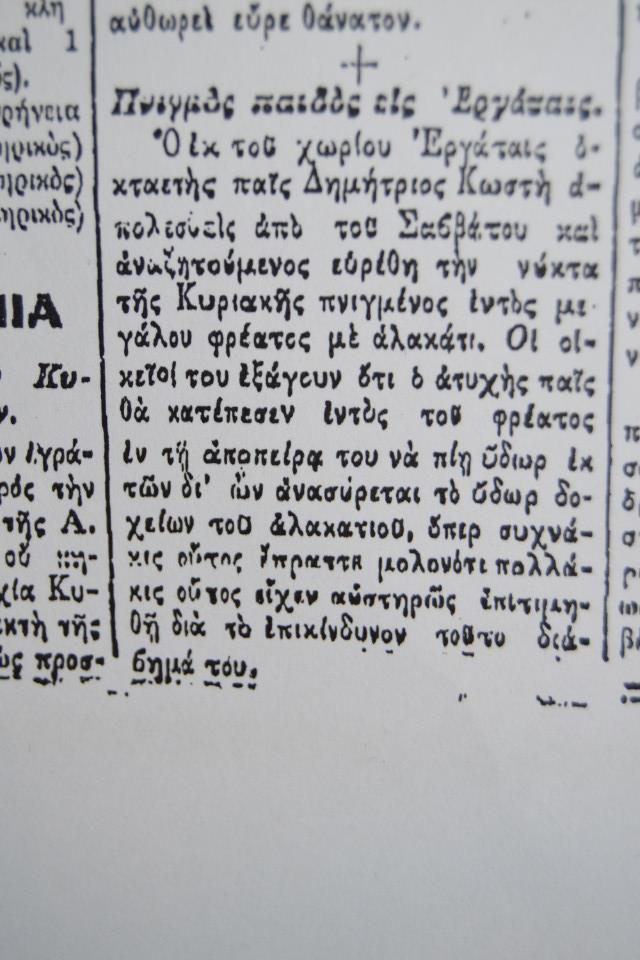 κλη
καὶ 1
ς).
ρήνεια
ηρικὸς)
ηρικὸς)
ηρικὸς)
ΙΙΑ
Κυ-
ν.
ων ἐγρά-
ρός τὴν
τῆς Α.
οὗ πη-
χία Κυ-
εκτὴ τῆς
ὡς προσ-
αὐθωρεὶ εὗρε θάνατον.
Πνιγμὸς παιδὸς εἰς Ἐργάταις.
Ὁ ἐκ τοῦ χωρίου Ἐργάταις ὀ-
κταετὴς παῖς Δημήτριος Κωστῆ ἀ-
πολεσθεὶς ἀπὸ τοῦ Σαββάτου καὶ
ἀναζητούμενος εὑρέθη τὴν νύκτα
τῆς Κυριακῆς πνιγμένος ἐντὸς με-
γάλου φρέατος μὲ ἀλακάτι. Οἱ οἰ-
κεῖοί του ἐξάγουν ὅτι ὁ ἀτυχὴς παῖς
θὰ κατέπεσεν ἐντὸς τοῦ φρέατος
ἐν τῇ ἀποπείρᾳ του νὰ πίῃ ὕδωρ ἐκ
τῶν δι' ὧν ἀνασύρεται τὸ ὕδωρ δο-
χείων τοῦ ἀλακατιοῦ, ὅπερ συχνά-
κις οὗτος ἔπραττε μολονότι πολλά-
κις οὗτος εἶχεν αὐστηρῶς ἐπιτιμη-
θῇ διὰ τὸ ἐπικίνδυνον τοῦτο διά-
βημά του.